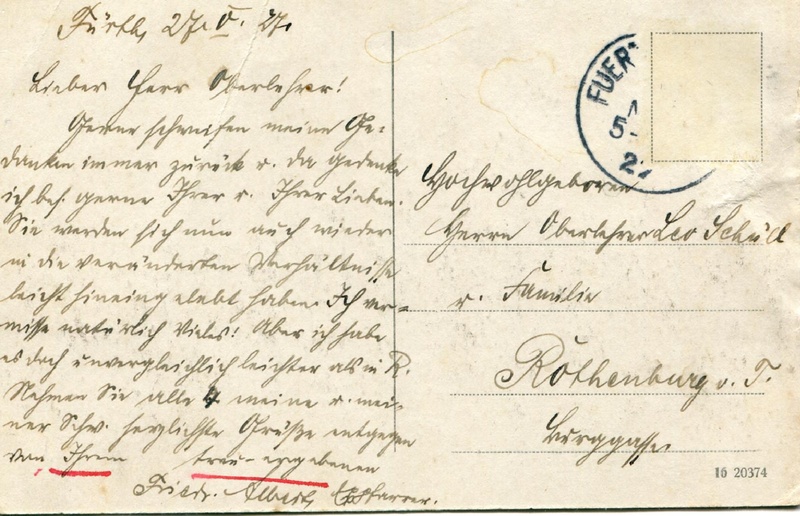 Fürth, 27. V. 27.
Lieber Herr Oberlehrer!
Gerne schweifen meine Ge-
danken immer zurück u. da gedenke
ich bes. gerne Ihrer u. Ihrer Lieben.
Sie werden sich nun auch wieder
in die veränderten Verhältnisse
leicht hineingelebt haben. Ich ver-
misse natürlich Vieles! Aber ich habe
es doch unvergleichlich leichter als in R.
Nehmen Sie alle 4 meine u. mei-
ner Schw. herzlichste Grüße entgegen
von Ihrem treu-ergebenen
Friedr. Albert, Pfarrer.
FUER
5
Hochwohlgeboren
Herrn Oberlehrer Leo Schüll
u. Familie
Rothenburg o. T.
Burggasse
16 20374